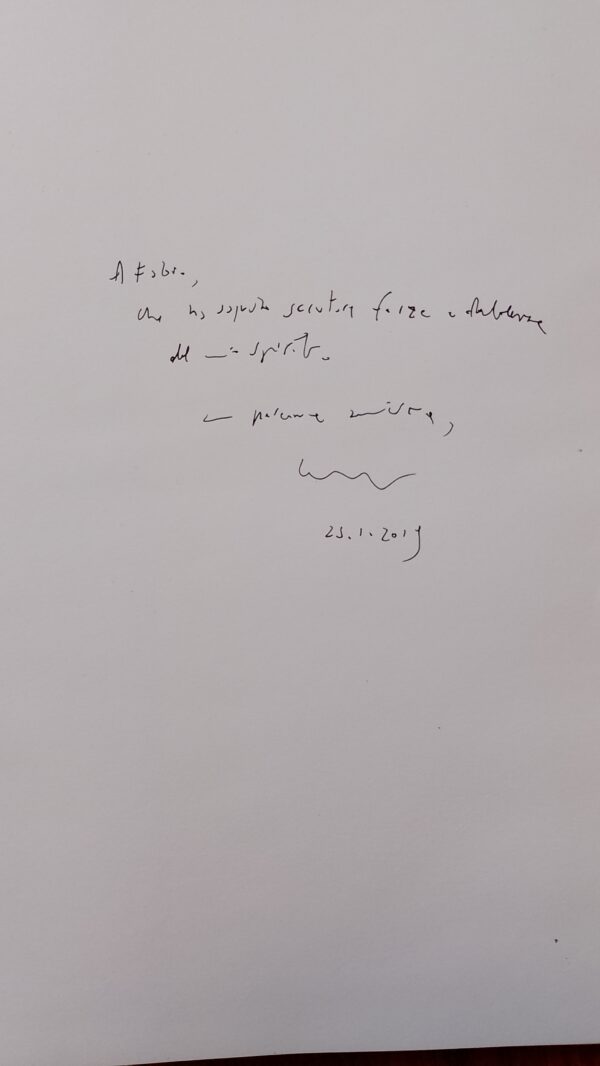 A Fabio,
che ha saputo scrutare forze e debolezze
del mio spirito.
perenne amicizia,
23.1.2019